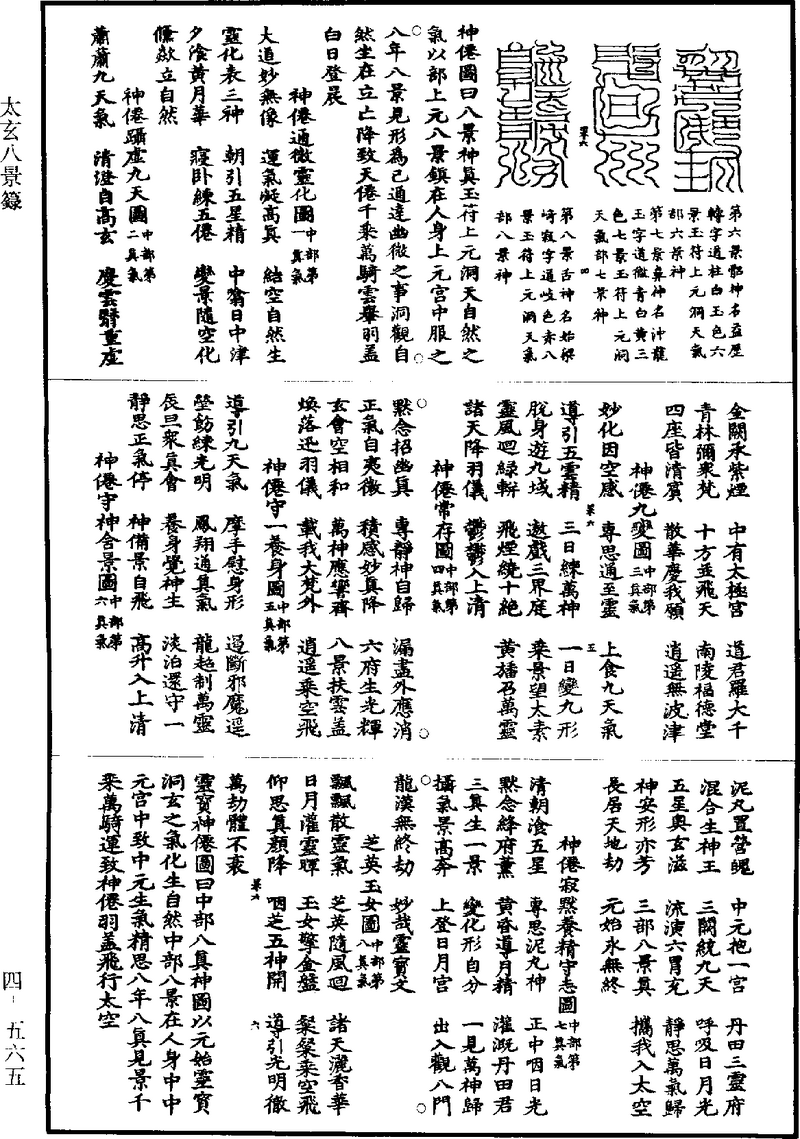 太玄八景籙
第六景骼神名益歷
轉字道柱白玉色六
景玉符上元洞天氣
部六景神
第七景鼻神名沖龍
玉字道微青白黃三
色七景玉符上元洞
天氣部七景神
第八景舌神名始梁
峙寂字道岐色赤八
景玉符上元洞天氣
部八景神
神僊圖曰八景神真玉符上元洞天自然之
氣以部上元八景鎮在人身上元宮中服之
八年八景見形為己通達幽微之事洞觀自
然坐在立亡降致天僊千乘萬騎雲轝羽蓋
白日登晨
神僊通微靈化圖中部第一真氣
大道妙無像 運氣凝高真 結空自然生
靈化表三神 朝引五星精 中翕日中津
夕飡黃月華 寢卧練五僊 變景隨空化
儵欻立自然
神僊躡虛九天圖中部第二真氣
蕭蕭九天氣 清澄自高玄 慶雲翳重虛
金闕承紫煙 中有太極宮 道君羅大千
青林彌衆梵 十方並飛天 南陵福德堂
四座皆清賓 散華慶我願 逍遥無波津
神僊九變圖中部第三真氣
妙化因空感 專思通至靈 上食九天氣
導引五雲精 三日練萬神 一日變九形
脫身遊九域 遨戲三界庭 乘景望太素
靈風迴綠輧 飛煙繞十絕 黃旛召萬靈
諸天降羽儀 鬱鬱入上清
神僊常存圖中部第四真氣
默念招幽真 專靜神自歸 漏盡外應消
正氣自夷微 積感妙真降 六府生光輝
玄會空相和 萬神應響齊 八景扶雲蓋
煥落迅羽儀 載我大梵外 逍遥乘空飛
神僊守一養身圖中部第五真氣
導引九天氣 摩手慰身形 遏斷邪魔遥
瑩飭練光明 鳳翔通真氣 龍超制萬靈
辰旦衆真會 養身覺神生 淡泊還守一
靜思正氣停 神備景自飛 高升入上清
神僊守神含景圖中部第六真氣
泥丸置營魄 中元抱一宮 丹田三靈府
混合生神王 三關統九天 呼吸日月光
五星奥玄滋 流演六胃充 靜思萬氣歸
神安形亦芳 三部八景真 攜我入太空
長居天地劫 元始永無終
神僊寂默養精守志圖中部第七真氣
清朝飡五星 專思泥丸神 正中咽日光
默念絳府薰 黃昏導月精 灌溉丹田君
三真生一景 變化形自分 一見萬神歸
攝氣景高奔 上登日月宮 出入觀八門
龍漢無終劫 妙哉靈寶文
芝英玉女圖中部第八真氣
飄飄散靈氣 芝英隨風迴 諸天灑香華
日月灌靈暉 玉女擎金盤 粲粲乘空飛
仰思真顏降 咽芝五神開 導引光明徹
萬劫體不衰
靈寶神僊圖曰中部八真神圖以元始靈寶
洞玄之氣化生自然中部八景在人身中中
元宮中致中元生氣精思八年八真見景千
乘萬騎運致神僊羽蓋飛行太空
四-五六五